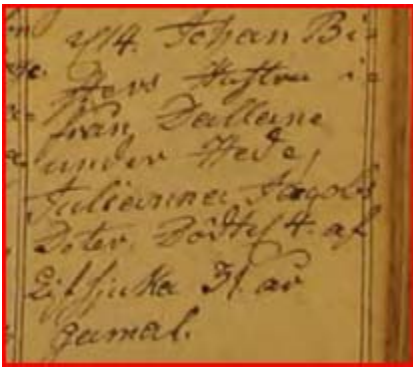 d. 14. Johan Bi=
Hers Hustru i=
från Dallarne
under Hede,
Julianna Jacobs
Doter. Dödt d. 4. af
Lifsjuka 31. år
gamal.